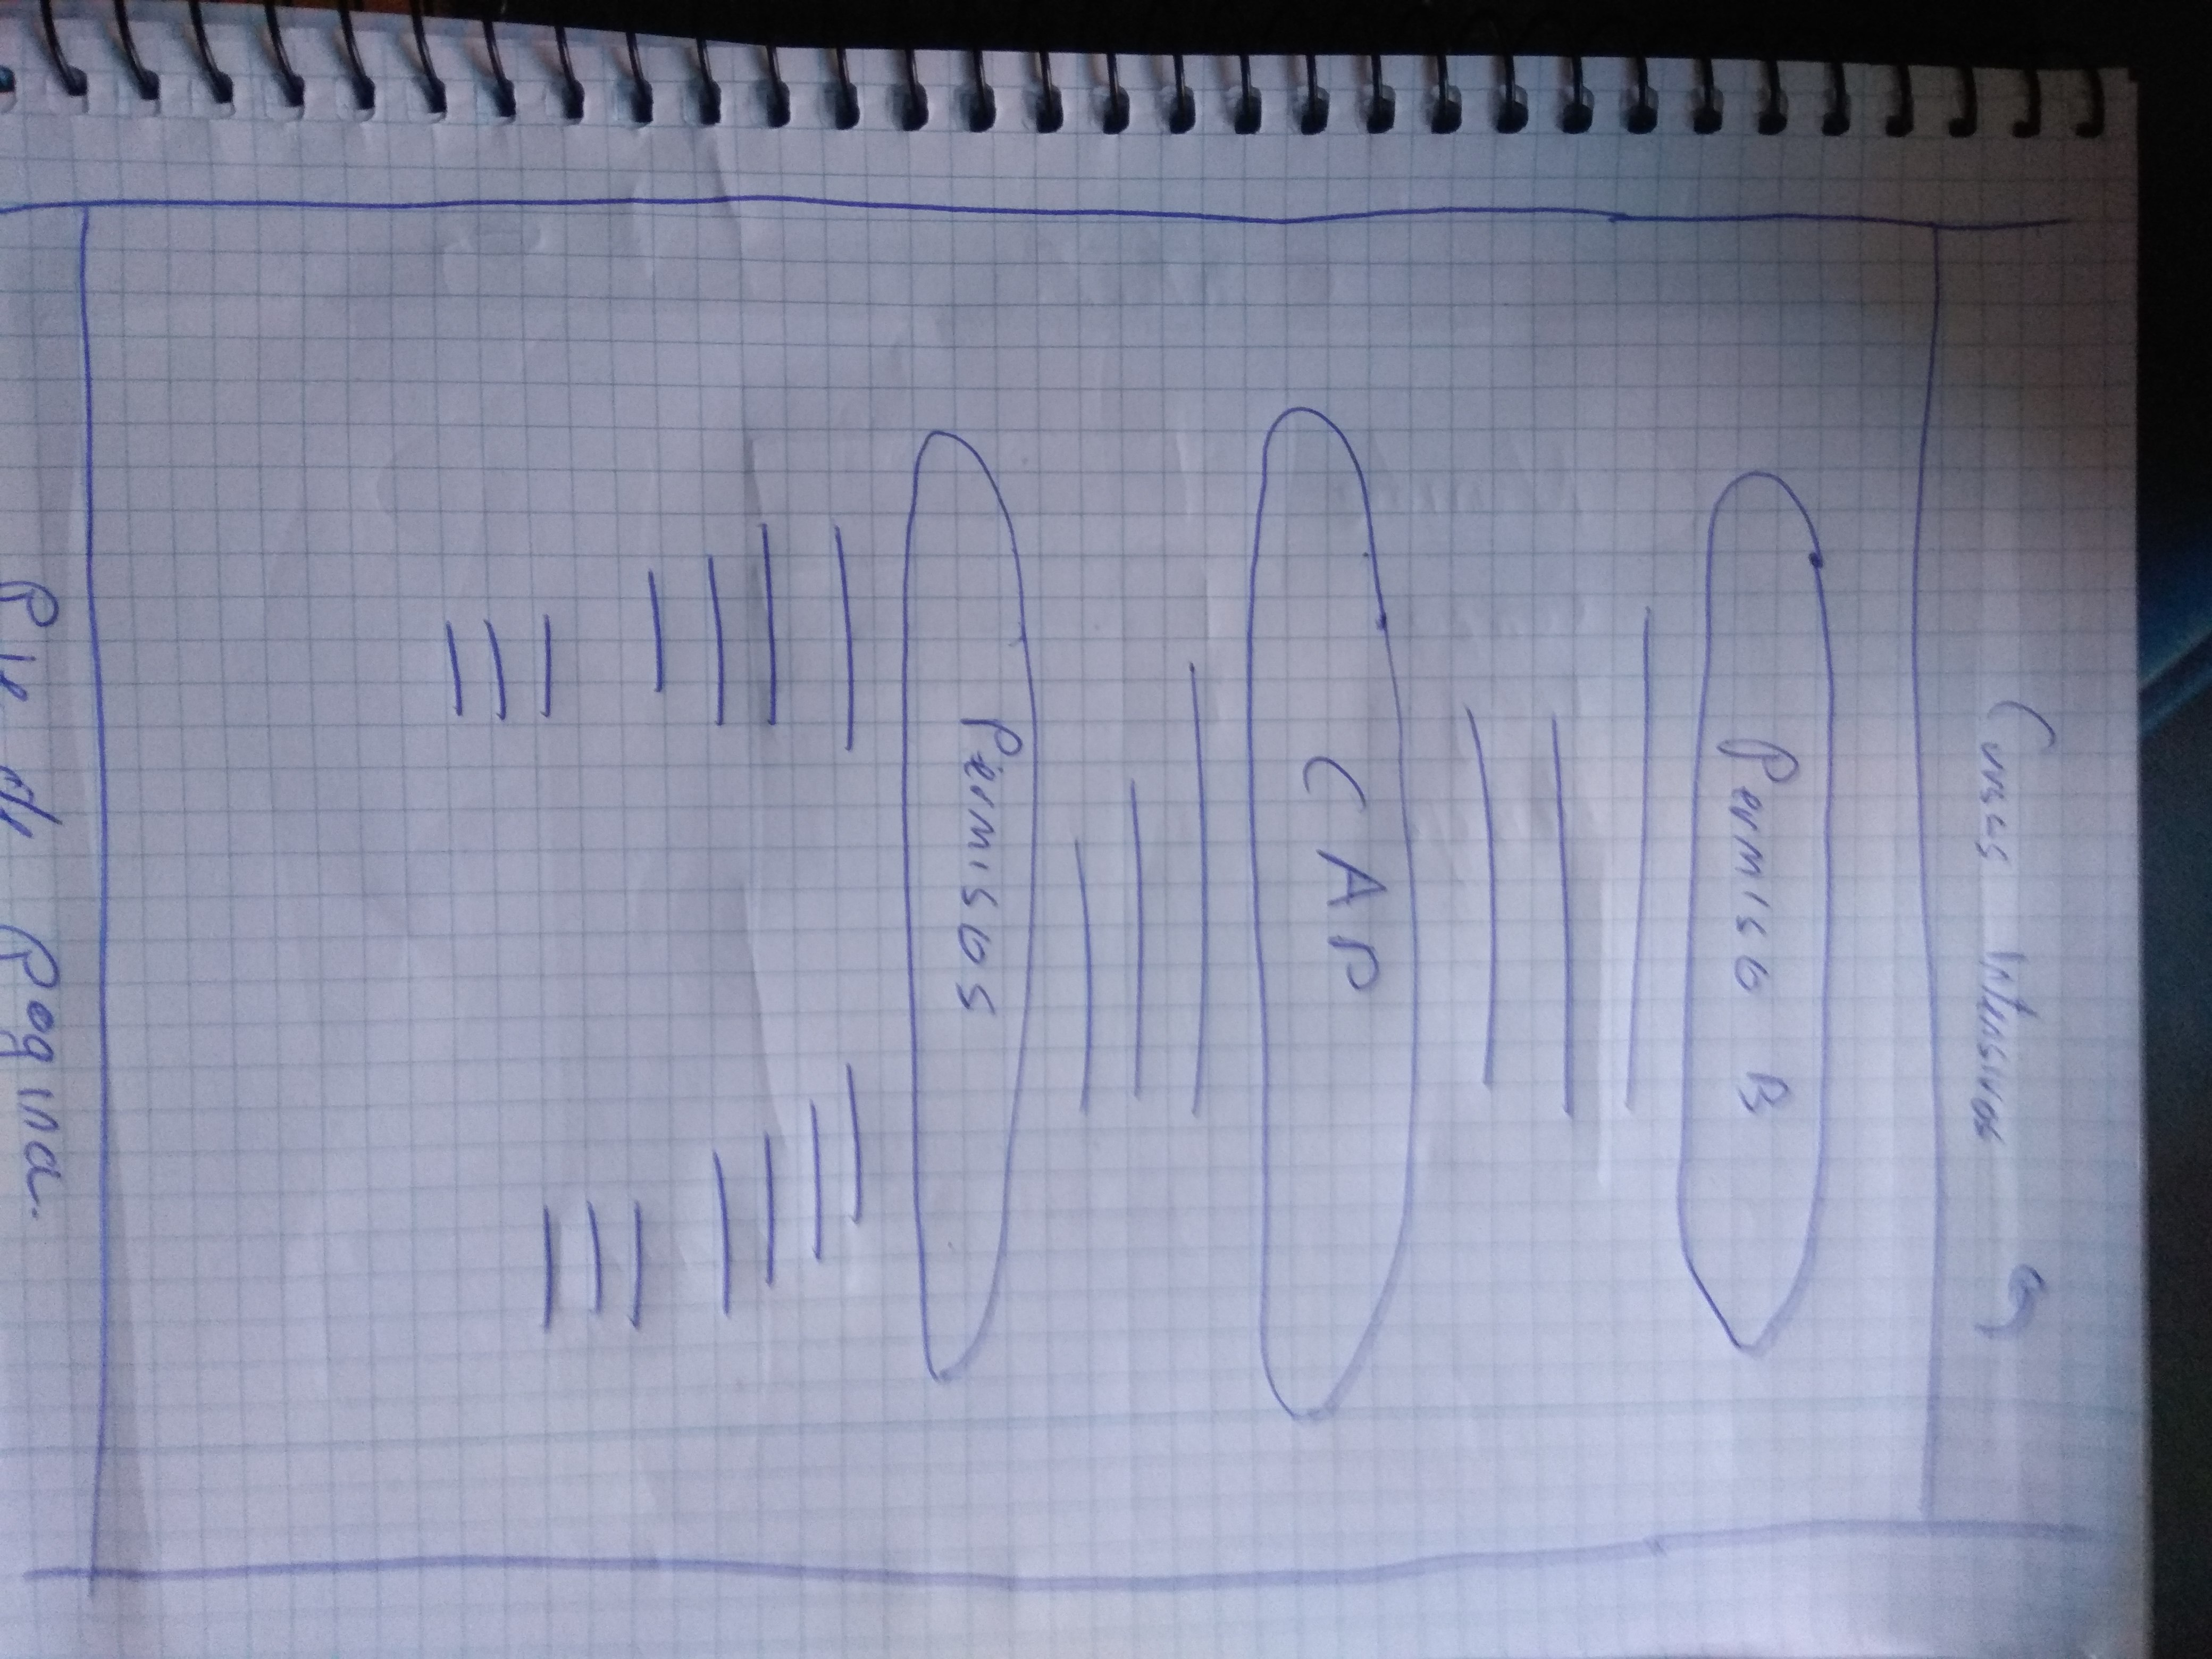 Cursos Intensivos
Permiso B
CAP
Permisos
Pie de pagina.